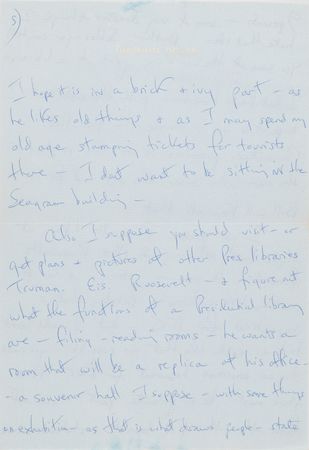 5)
I hope it is in a brick + ivy part - as
he likes old things + as I may spend my
old age stamping tickets for tourists
there - I don't want to be sitting in the
Seagram building -
Also I suppose you should visit - or
get plans + pictures of other Pres libraries
Truman. Eis. Roosevelt - + figure out
what the functions of a Presidential library
are - filing - reading rooms - he wants a
room that will be a replica of his office -
- a souvenir hall I suppose - with some things
on exhibition - as that is what draws people - state